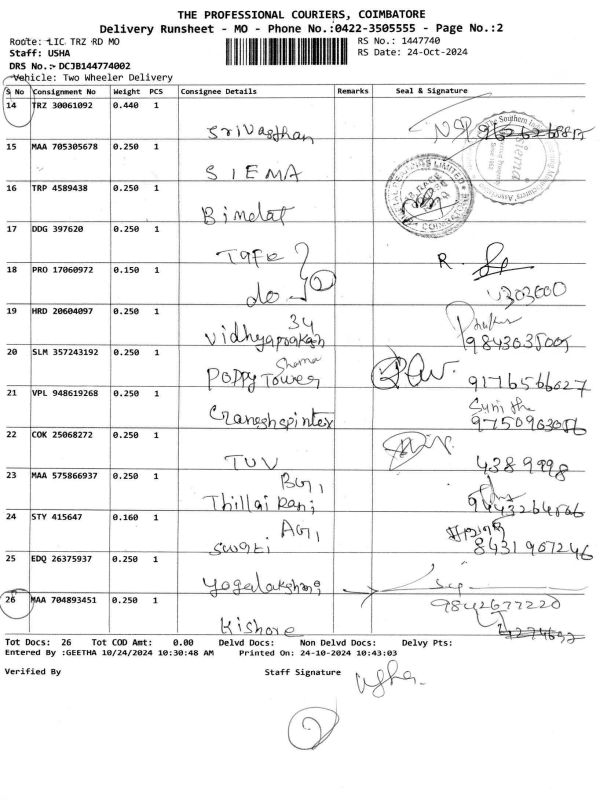 THE PROFESSIONAL COURIERS, COIMBATORE
Delivery Runsheet - MO - Phone No.:0422-3505555 - Page No.:2
Route: LIC TRZ RD MO
RS No.: 1447740
Staff: USHA
RS Date: 24-Oct-2024
DRS No.:- DCJB144774002
Vehicle: Two Wheeler Delivery
S No Consignment No Weight PCS Consignee Details Remarks Seal & Signature
14 TRZ 30061092 0.440 1
Srivasthan
15 MAA 705305678 0.250 1
SIEMA
16 TRP 4589438 0.250 1
Bimetat
17 DDG 397620 0.250 1
TAFE
18 PRO 17060972 0.150 1
do 2
R.
19 HRD 20604097 0.250 1
34
Vidhyaprakash
20 SLM 357243192 0.250 1
Sharma
Poppy Tower
9176566027
21 VPL 948619268 0.250 1
Craneshspintex
Sunitha
9750963056
22 COK 25068272 0.250 1
TUV
4389998
23 MAA 575866937 0.250 1
BG1
Thillai Rani
24 STY 415647 0.160 1
AG1
Swati
8431907246
25 EDQ 26375937 0.250 1
Yogalakshmi
26 MAA 704893451 0.250 1
9842677220
Kishore
Tot Docs: 26 Tot COD Amt: 0.00 Delvd Docs: Non Delvd Docs: Delvy Pts:
Entered By :GEETHA 10/24/2024 10:30:48 AM Printed On: 24-10-2024 10:43:03
Verified By
Staff Signature
Usha.
2